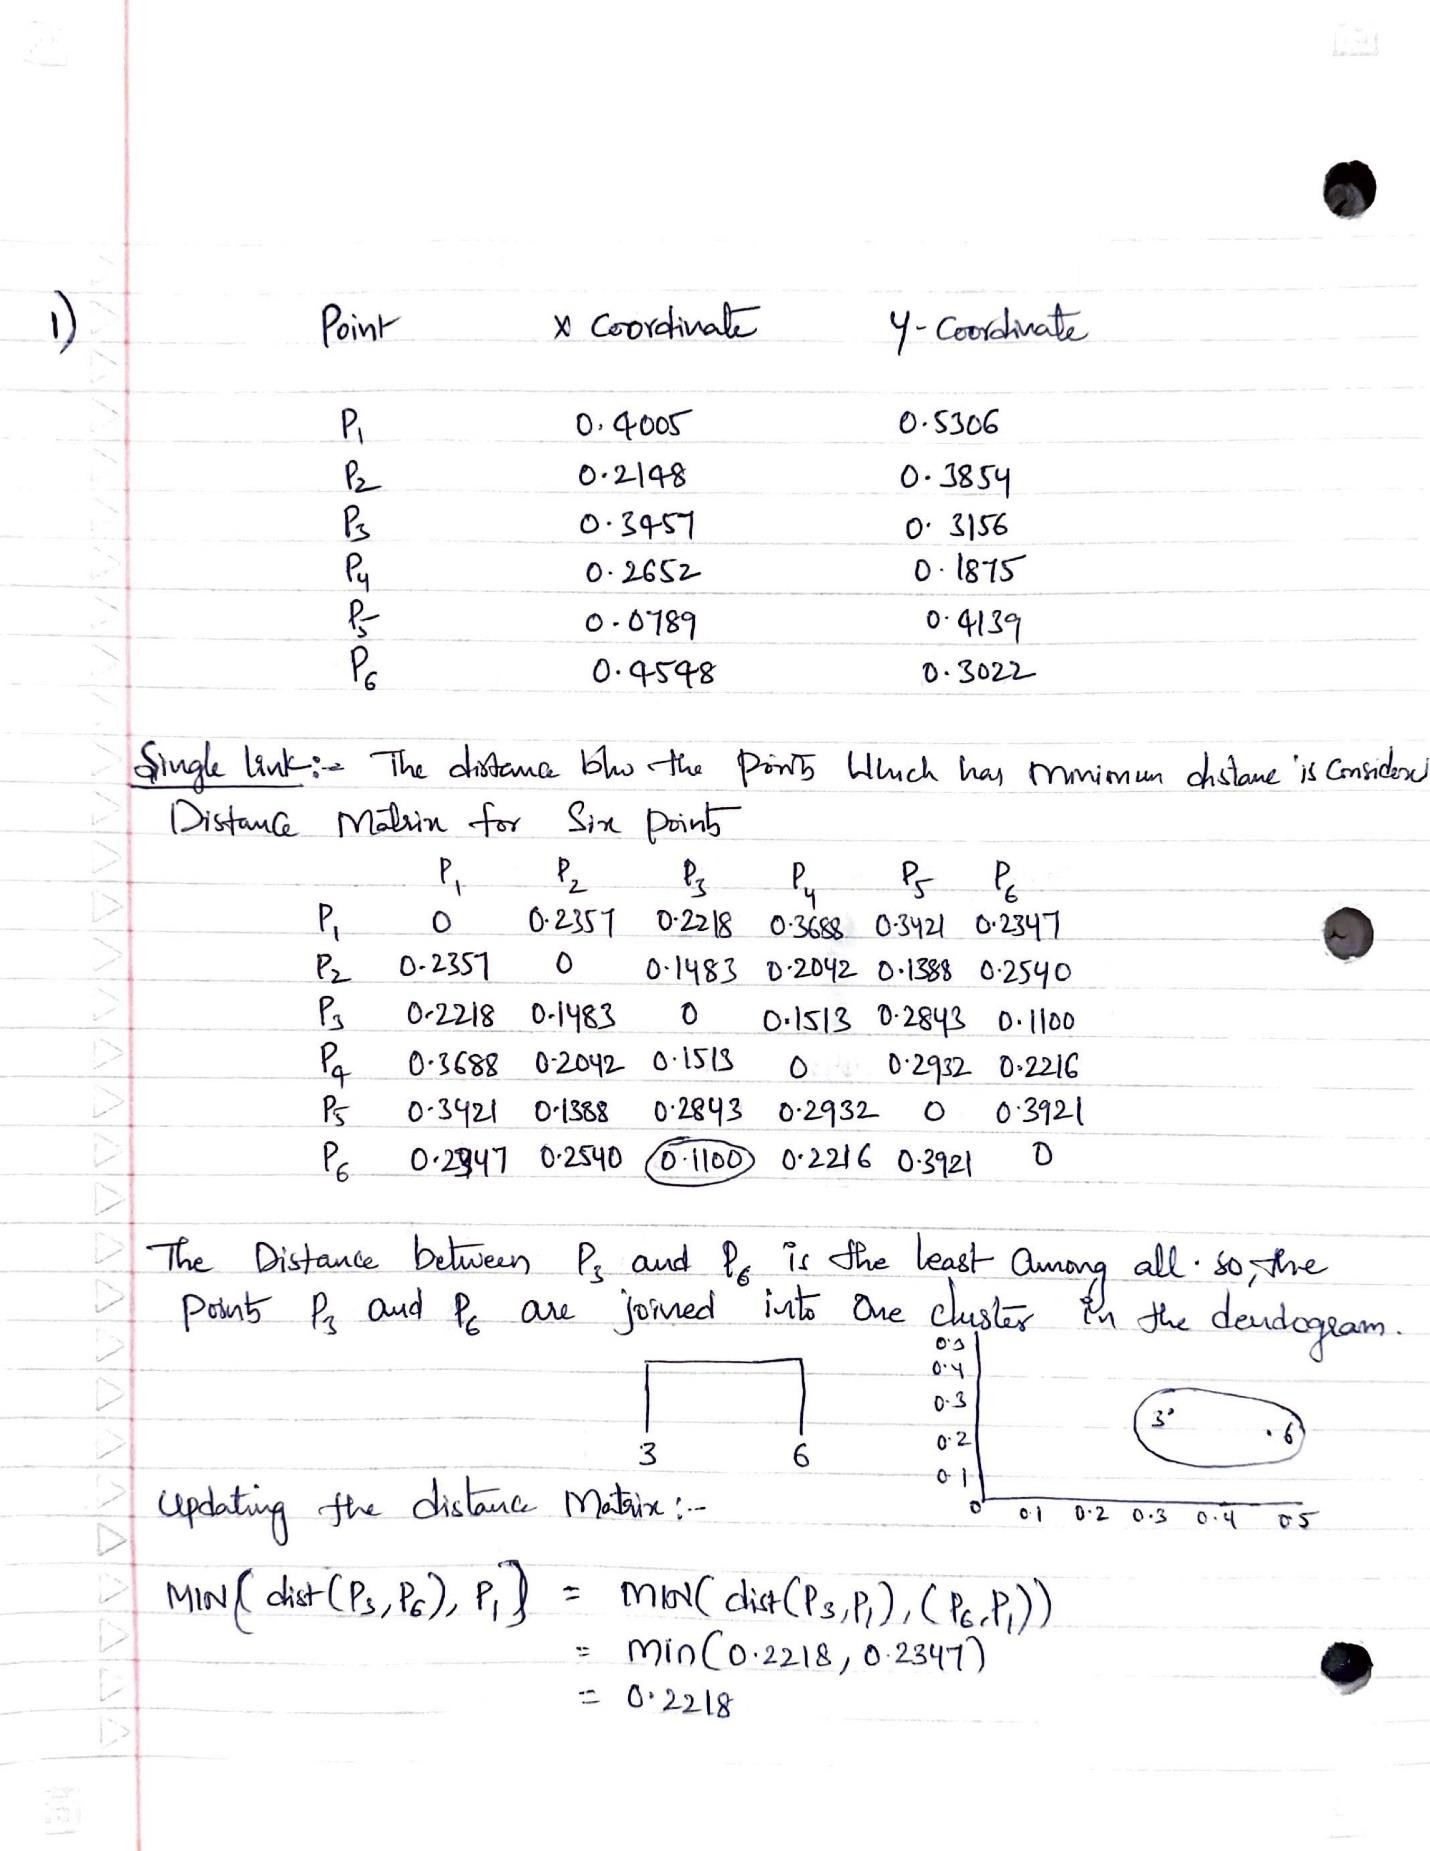 1) Point x Coordinate y-Coordinate
P1 0.4005 0.5306
P2 0.2148 0.3854
P3 0.3457 0.3156
P4 0.2652 0.1875
P5 0.0789 0.4139
P6 0.4548 0.3022
Single link:- The distance b/w the points which has minimum distane is Considered
Distance Matrix for Six points
P1 P2 P3 P4 P5 P6
P1 0 0.2357 0.2218 0.3688 0.3421 0.2347
P2 0.2357 0 0.1483 0.2042 0.1388 0.2540
P3 0.2218 0.1483 0 0.1513 0.2843 0.1100
P4 0.3688 0.2042 0.1513 0 0.2932 0.2216
P5 0.3421 0.1388 0.2843 0.2932 0 0.3921
P6 0.2347 0.2540 0.1100 0.2216 0.3921 0
The Distance between P3 and P6 is the least among all. so, the
points P3 and P6 are joined into one cluster in the dendogram.
0.5
0.4
0.3
3 6
0.2
3 6
0.1
0 0.1 0.2 0.3 0.4 0.5
Updating the distance Matrix:-
MIN{ dist(P3,P6), P1} = MIN( dist(P3,P1),(P6,P1))
= min(0.2218, 0.2347)
= 0.2218